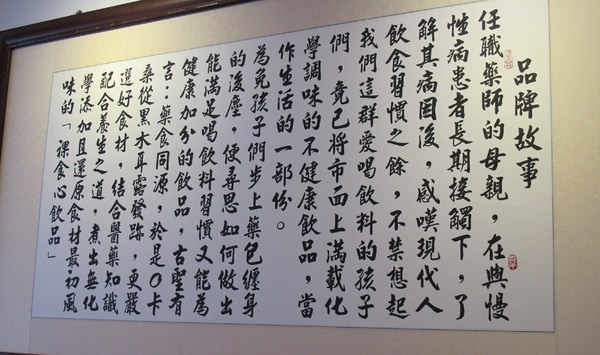 品牌故事
任職藥師的母親，在與慢
性病患者長期接觸下，了
解其病因後，感嘆現代人
飲食習慣之餘，不禁想起
我們這群愛喝飲料的孩子
們，竟已將市面上滿載化
學調味的不健康飲品，當
作生活的一部份。
為免孩子們步上藥包纏身
的後塵，便尋思如何做出
能滿足喝飲料習慣又能為
健康加分的飲品，古聖有
言：藥食同源，於是0卡
桑從黑木耳露發跡，更嚴
選好食材，結合醫藥知識
配合養生之道，煮出無化
學添加且還原食材最初風
味的「裸食心飲品」